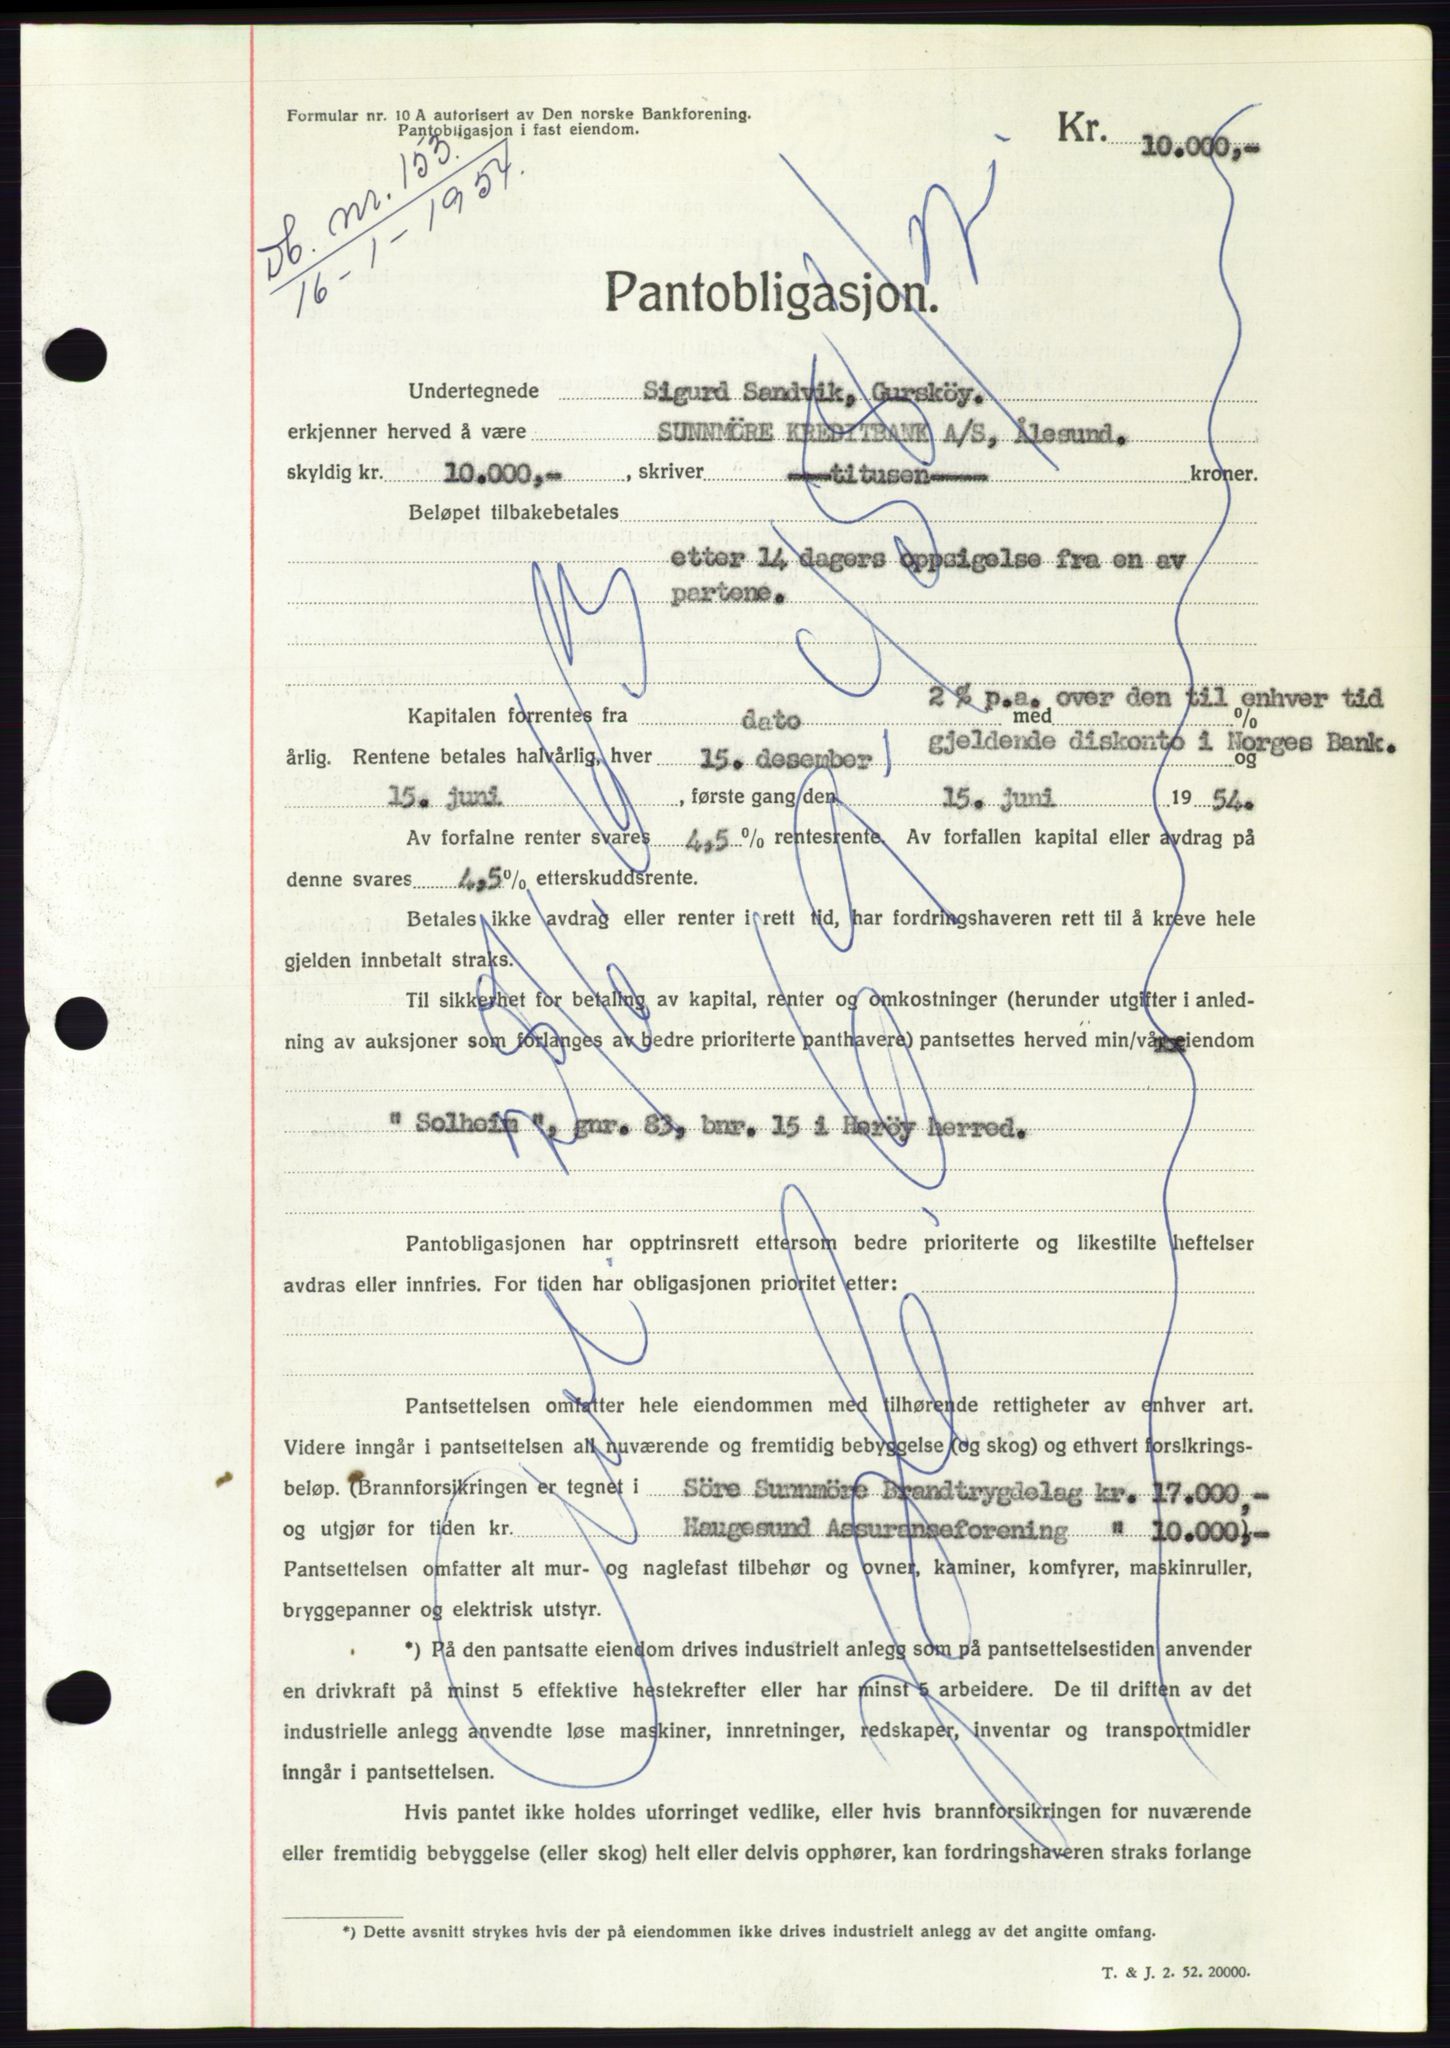 Formular nr. 10 A autorisert av Den norske Bankforening.
Pantobligasjon i fast eiendom.
Kr. 10.000,-
Db. nr. 153.
16-1-1954.
Pantobligasjon.
Undertegnede Sigurd Sandvik, Gursköy.
erkjenner herved å være SUNNMÖRE KREDITBANK A/S, Ålesund.
skyldig kr. 10.000,- , skriver ----titusen---- kroner.
Beløpet tilbakebetales
etter 14 dagers oppsigelse fra en av
partene.
2 % p.a. over den til enhver tid
Kapitalen forrentes fra dato med %
gjeldende diskonto i Norges Bank.
årlig. Rentene betales halvårlig, hver 15. desember og
15. juni , første gang den 15. juni 19 54.
Av forfalne renter svares 4,5 % rentesrente. Av forfallen kapital eller avdrag på
denne svares 4,5 % etterskuddsrente.
Betales ikke avdrag eller renter i rett tid, har fordringshaveren rett til å kreve hele
gjelden innbetalt straks.
Til sikkerhet for betaling av kapital, renter og omkostninger (herunder utgifter i anled-
ning av auksjoner som forlanges av bedre prioriterte panthavere) pantsettes herved min/vår eiendom
" Solheim ", gnr. 83, bnr. 15 i Heröy herred.
Pantobligasjonen har opptrinsrett ettersom bedre prioriterte og likestilte heftelser
avdras eller innfries. For tiden har obligasjonen prioritet etter:
Pantsettelsen omfatter hele eiendommen med tilhørende rettigheter av enhver art.
Videre inngår i pantsettelsen all nuværende og fremtidig bebyggelse (og skog) og ethvert forsikrings-
beløp. (Brannforsikringen er tegnet i Söre Sunnmöre Brandtrygdelag kr. 17.000,-
og utgjør for tiden kr. Haugesund Assuranseforening " 10.000,-)
Pantsettelsen omfatter alt mur- og naglefast tilbehør og ovner, kaminer, komfyrer, maskinruller,
bryggepanner og elektrisk utstyr.
*) På den pantsatte eiendom drives industrielt anlegg som på pantsettelsestiden anvender
en drivkraft på minst 5 effektive hestekrefter eller har minst 5 arbeidere. De til driften av det
industrielle anlegg anvendte løse maskiner, innretninger, redskaper, inventar og transportmidler
inngår i pantsettelsen.
Hvis pantet ikke holdes uforringet vedlike, eller hvis brannforsikringen for nuværende
eller fremtidig bebyggelse (eller skog) helt eller delvis opphører, kan fordringshaveren straks forlange
*) Dette avsnitt strykes hvis der på eiendommen ikke drives industrielt anlegg av det angitte omfang.
T. & J. 2. 52. 20000.